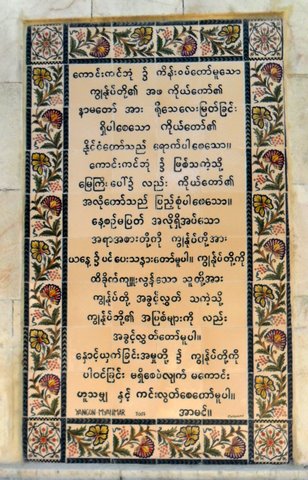 ကောင်းကင်ဘုံ ၌ ကိန်းဝပ်တော်မူသော
ကျွန်ုပ်တို့၏ အဖ ကိုယ်တော်၏
နာမတော် အား ရိုသေလေးမြတ်ခြင်း
ရှိပါစေသော ကိုယ်တော်၏
နိုင်ငံတော်သည် ရောက်ပါစေသော။
ကောင်းကင်ဘုံ ၌ ဖြစ်သကဲ့သို့
မြေကြီးပေါ်၌ လည်း ကိုယ်တော်၏
အလိုတော်သည် ပြည့်စုံပါစေသော။
နေ့စဉ်မပြတ် အလိုရှိအပ်သော
အရာအစားတို့ကို ကျွန်ုပ်တို့အား
ယနေ့ ၌ ပင် ပေးသနားတော်မူပါ။ ကျွန်ုပ်တို့ကို
ထိခိုက်ကျူးလွန်သော သူတို့အား
ကျွန်ုပ်တို့ အခွင့်လွှတ် သကဲ့သို့
ကျွန်ုပ်တို့၏ အပြစ်များကို လည်း
အခွင့်လွှတ်တော်မူပါ။
နှောင့်ယှက်ခြင်းအမှုတို့ ၌ ကျွန်ုပ်တို့ကို
ပါဝင်ခြင်း မရှိစေပဲလျက် မကောင်း
ဟူသမျှ နှင့် ကင်းလွတ်စေတော်မူပါ။
YANGON MYANMAR အာမင်။